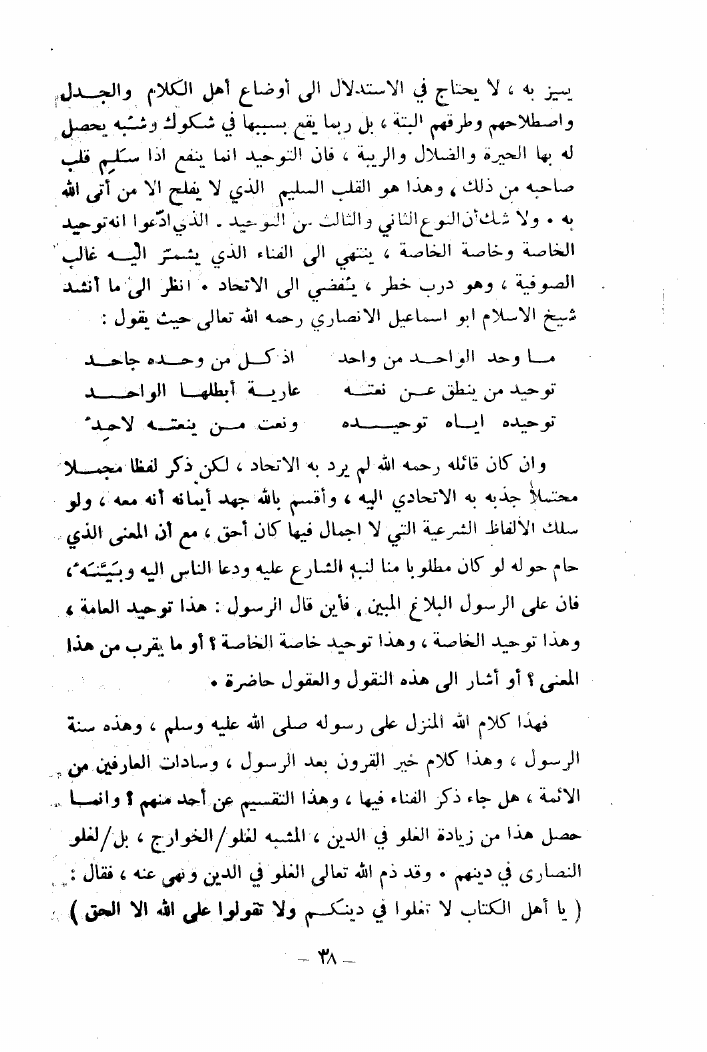 يميز به ، لا يحتاج في الاستدلال الى أوضاع أهل الكلام والجدل
واصطلاحهم وطرقهم البتة ، بل ربما يقع بسببها في شكوك وشُبه يحصل
له بها الحيرة والضلال والريبة ، فان التوحيد انما ينفع اذا سَلِم قلب
صاحبه من ذلك ، وهذا هو القلب السليم الذي لا يفلح الا من أتى الله
به ٠ ولا شك أن النوع الثاني والثالث من التوحيد . الذي ادّعوا انه توحيد
الخاصة وخاصة الخاصة ، ينتهي الى الفناء الذي يشمّر اليه غالب
الصوفية ، وهو درب خطر ، يُفضي الى الاتحاد ٠ انظر الى ما أنشد
شيخ الاسلام ابو اسماعيل الانصاري رحمه الله تعالى حيث يقول :
ما وحد الواحد من واحد اذ كل من وحده جاحد
توحيد من ينطق عن نعته عارية أبطلها الواحد
توحيده اياه توحيده ونعت من ينعته لاحد
وان كان قائله رحمه الله لم يرد به الاتحاد ، لكن ذكر لفظا مجملا
محتملاً جذبه به الاتحادي اليه ، وأقسم بالله جهد أيمانه أنه معه ، ولو
سلك الألفاظ الشرعية التي لا اجمال فيها كان أحق ، مع أن المعنى الذي
حام حوله لو كان مطلوبا منا لنبه الشارع عليه ودعا الناس اليه وبَيَّنَه ،
فان على الرسول البلاغ المبين ، فأين قال الرسول : هذا توحيد العامة ،
وهذا توحيد الخاصة ، وهذا توحيد خاصة الخاصة ؟ أو ما يقرب من هذا
المعنى ؟ أو أشار الى هذه النقول والعقول حاضرة ٠
فهذا كلام الله المنزل على رسوله صلى الله عليه وسلم ، وهذه سنة
الرسول ، وهذا كلام خير القرون بعد الرسول ، وسادات العارفين من
الائمة ، هل جاء ذكر الفناء فيها ، وهذا التقسيم عن أحد منهم ؟ وانما
حصل هذا من زيادة الغلو في الدين ، المشبه لغلو/الخوارج ، بل/لغلو
النصارى في دينهم ٠ وقد ذم الله تعالى الغلو في الدين ونهى عنه ، فقال :
( يا أهل الكتاب لا تغلوا في دينكم ولا تقولوا على الله الا الحق )
– ٣٨ –